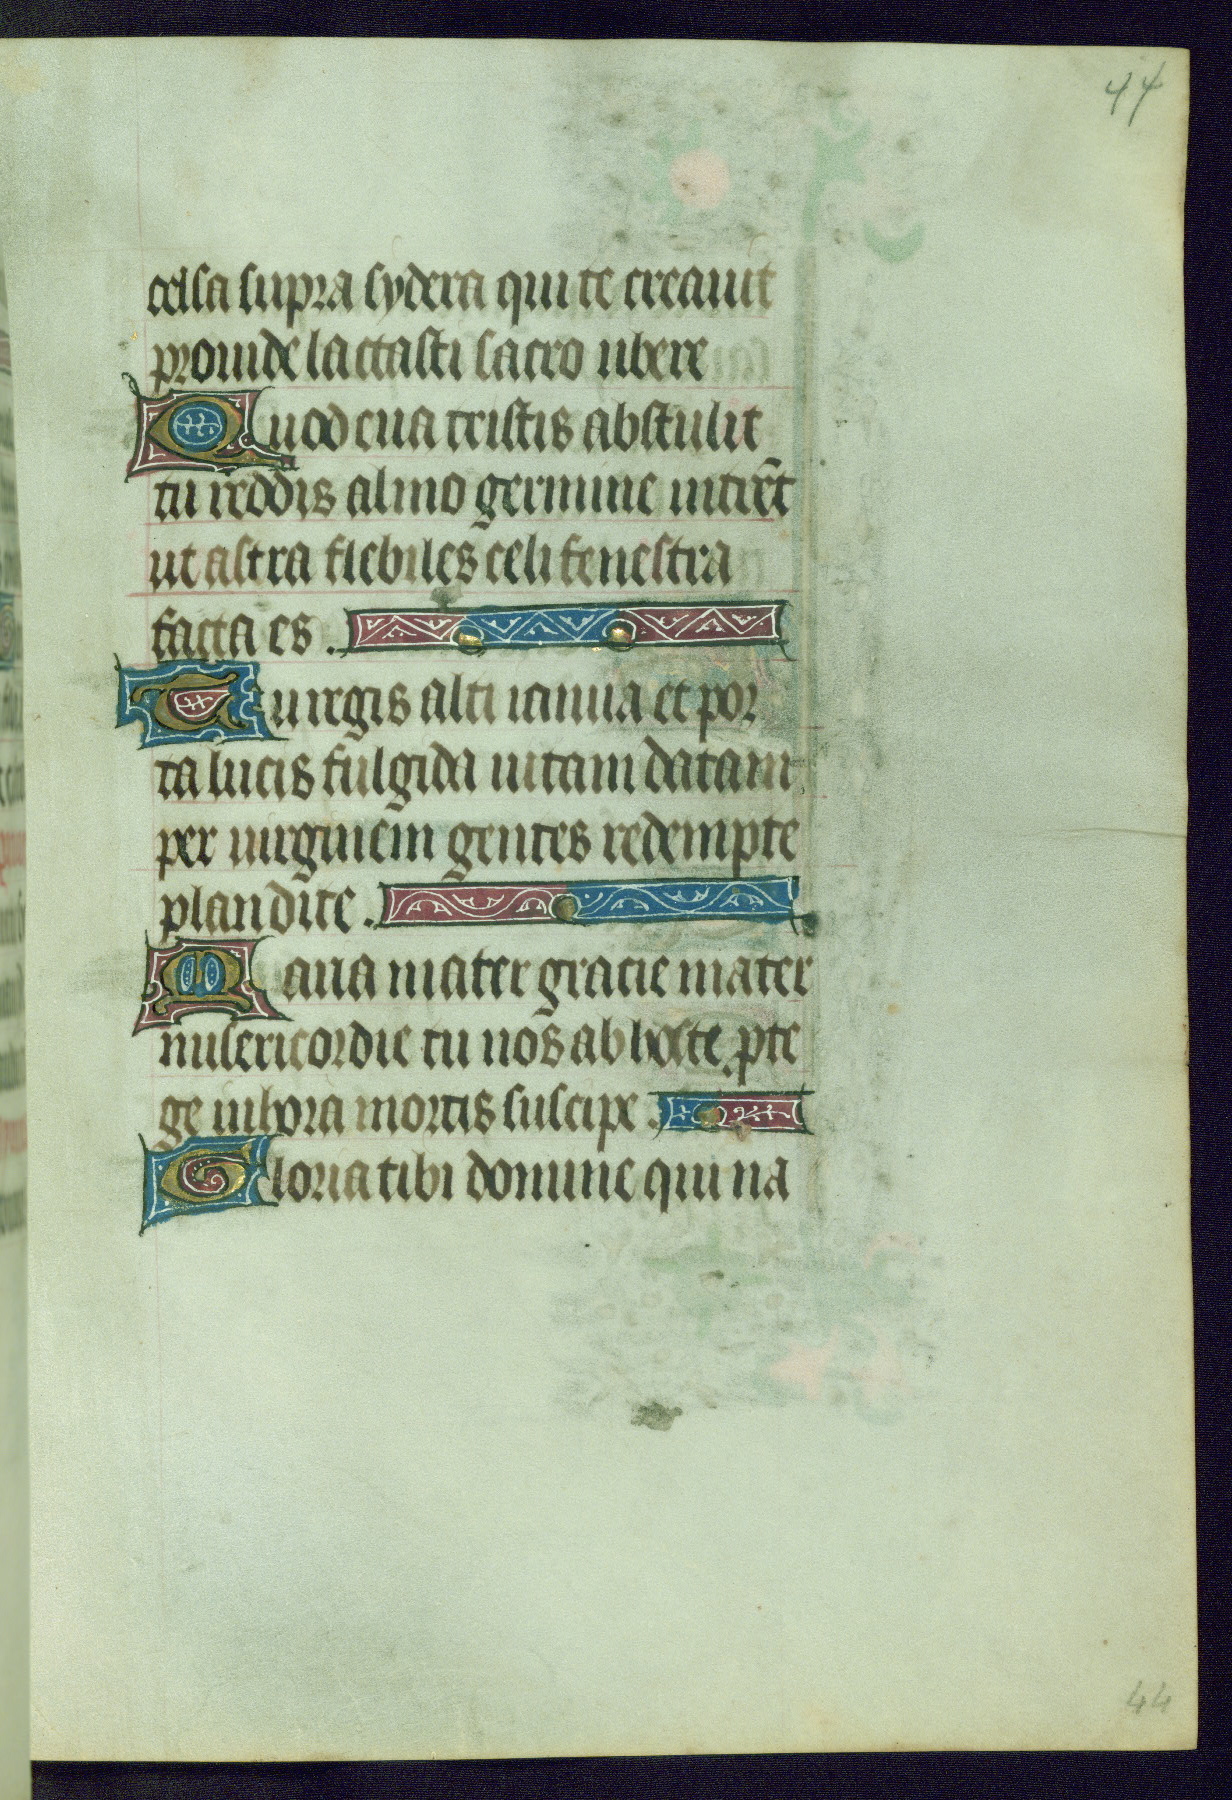 44
celsa supra sydera qui te creauit
prouide lactasti sacro ubere
Quod eua tristis abstulit
tu reddis almo germine intrēt
ut astra flebiles celi fenestra
facta es.
Tu regis alti ianua et por
ta lucis fulgida uitam datam
per uirginem gentes redempte
plaudite.
Maria mater gracie mater
misericordie tu nos ab hoste pte
ge in hora mortis suscipe.
Gloria tibi domine qui na
44